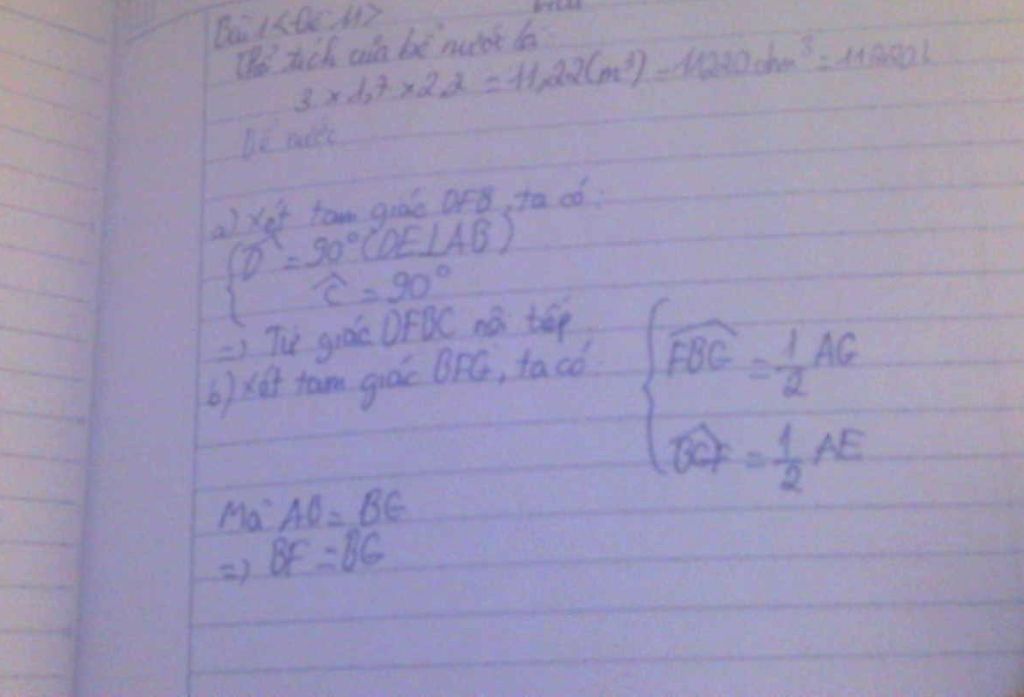 Bài 1 <Đề 11>
Thể tích của bể nước là
3 x 1,7 x 2,2 = 11,22 (m³) = 11220 dm³ = 11220 l
Bể nước
a) Xét tam giác DFB, ta có:
D̂ = 90° (DE⊥AB)
Ĉ = 90°
=> Tứ giác DFBC nội tiếp
b) Xét tam giác BFG, ta có
FBG = 1/2 AG
= 1/2 AE
Mà = BG
=> BF = BG